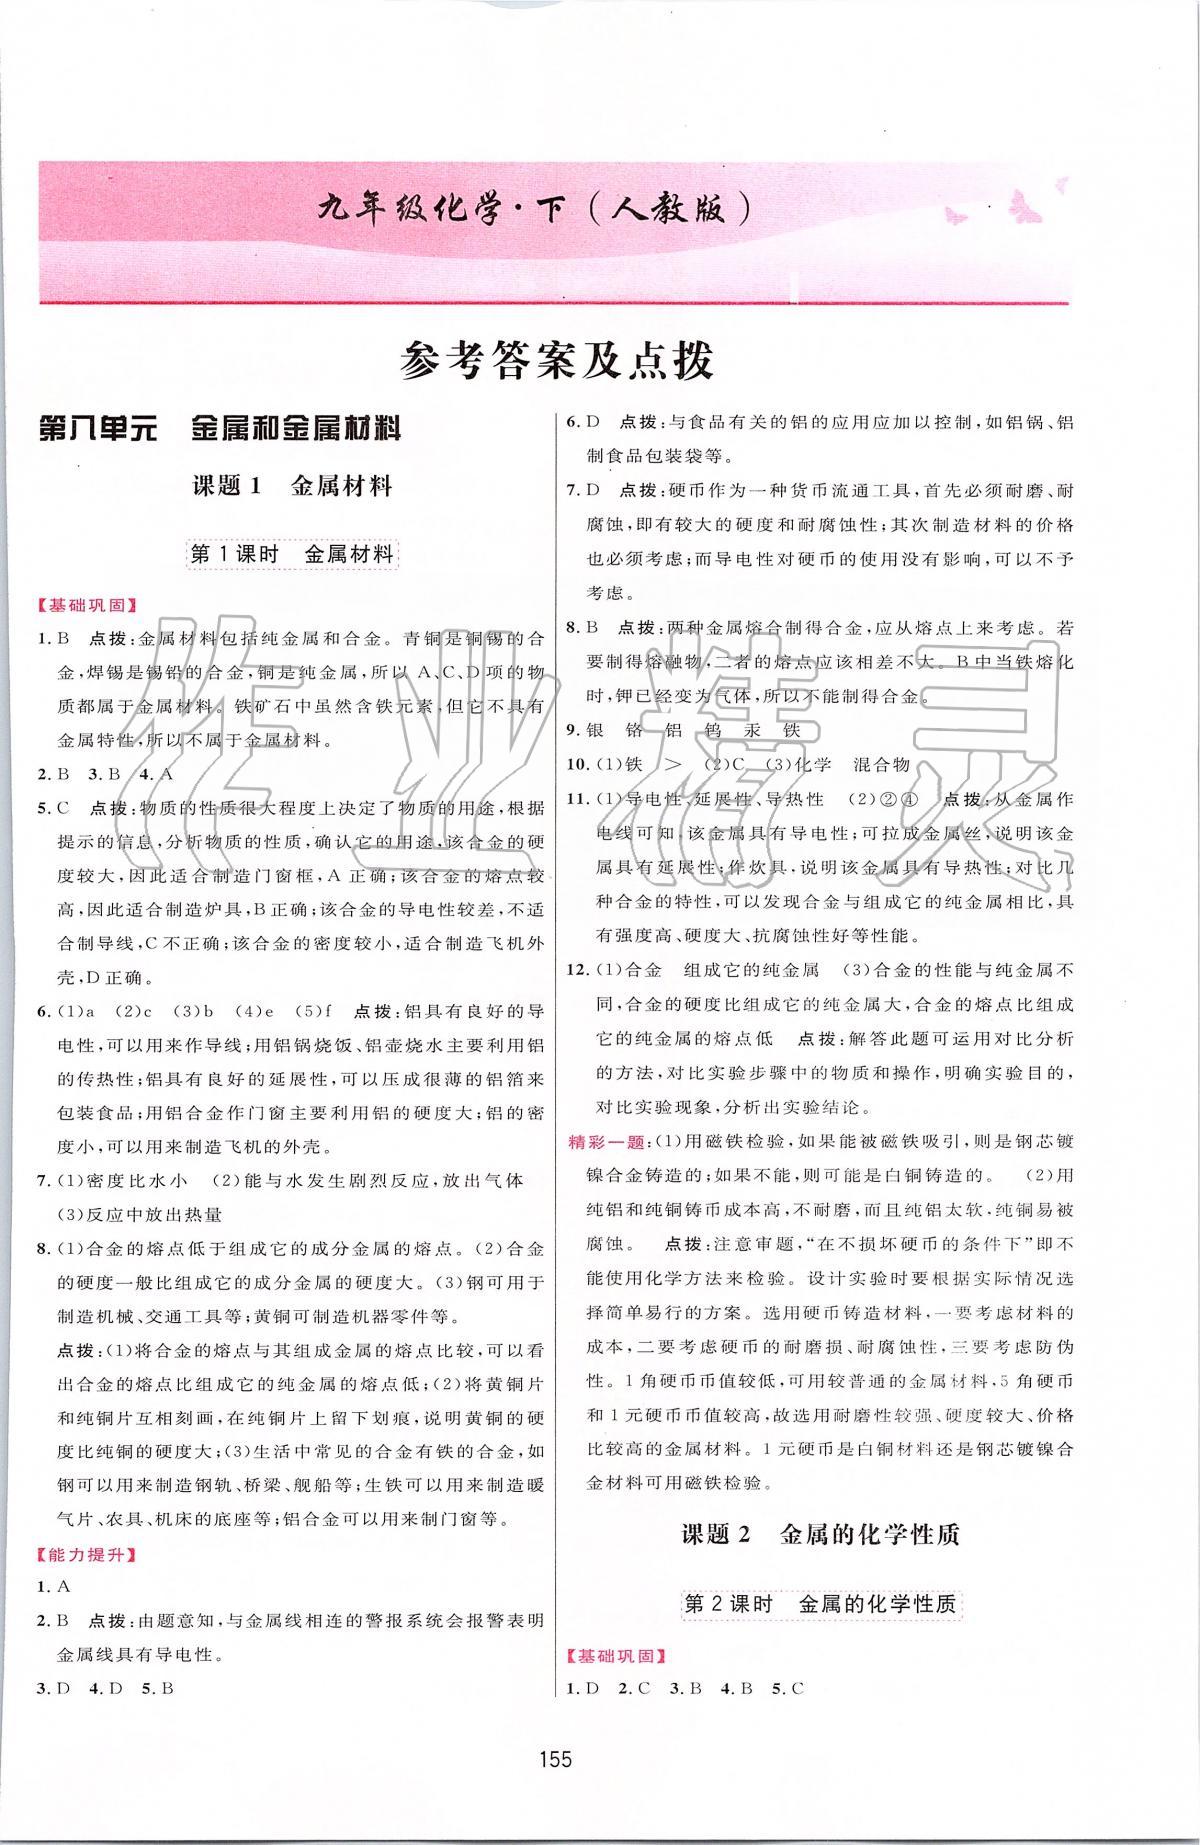 九年级化学·下(人教版)
参考答案及点拨
第八单元 金属和金属材料
课题1 金属材料
第1课时 金属材料
【基础巩固】
1. B 点拨:金属材料包括纯金属和合金。青铜是铜锡的合
金,焊锡是锡铅的合金,铜是纯金属,所以 A、C、D 项的物
质都属于金属材料。铁矿石中虽然含铁元素,但它不具有
金属特性,所以不属于金属材料。
2. B 3. B 4. A
5. C 点拨:物质的性质很大程度上决定了物质的用途,根据
提示的信息,分析物质的性质,确认它的用途,该合金的硬
度较大,因此适合制造门窗框,A 正确;该合金的熔点较
高,因此适合制造炉具,B正确;该合金的导电性较差,不适
合制导线,C不正确;该合金的密度较小,适合制造飞机外
壳,D正确。
6. (1)a (2)c (3)b (4)e (5)f 点拨:铝具有良好的导
电性,可以用来作导线;用铝锅烧饭、铝壶烧水主要利用铝
的传热性;铝具有良好的延展性,可以压成很薄的铝箔来
包装食品;用铝合金作门窗主要利用铝的硬度大;铝的密
度小,可以用来制造飞机的外壳。
7. (1)密度比水小 (2)能与水发生剧烈反应,放出气体
(3)反应中放出热量
8. (1)合金的熔点低于组成它的成分金属的熔点。(2)合金
的硬度一般比组成它的成分金属的硬度大。(3)钢可用于
制造机械、交通工具等;黄铜可制造机器零件等。
点拨:(1)将合金的熔点与其组成金属的熔点比较,可以看
出合金的熔点比组成它的纯金属的熔点低;(2)将黄铜片
和纯铜片互相刻画,在纯铜片上留下划痕,说明黄铜的硬
度比纯铜的硬度大;(3)生活中常见的合金有铁的合金,如
钢可以用来制造钢轨、桥梁、舰船等;生铁可以用来制造暖
气片、农具、机床的底座等;铝合金可以用来制门窗等。
【能力提升】
1. A
2. B 点拨:由题意知,与金属线相连的警报系统会报警表明
金属线具有导电性。
3. D 4. D 5. B
6. D 点拨:与食品有关的铝的应用应加以控制,如铝锅、铝
制食品包装袋等。
7. D 点拨:硬币作为一种货币流通工具,首先必须耐磨、耐
腐蚀,即有较大的硬度和耐腐蚀性;其次制造材料的价格
也必须考虑;而导电性对硬币的使用没有影响,可以不予
考虑。
8. B 点拨:两种金属熔合制得合金,应从熔点上来考虑。若
要制得熔融物,二者的熔点应该相差不大。B中当铁熔化
时,钾已经变为气体,所以不能制得合金。
9. 银 铬 铝 钨 汞 铁
10. (1)铁 > (2)C (3)化学 混合物
11. (1)导电性、延展性、导热性 (2)②④ 点拨:从金属作
电线可知,该金属具有导电性;可拉成金属丝,说明该金
属具有延展性;作炊具,说明该金属具有导热性;对比几
种合金的特性,可以发现合金与组成它的纯金属相比,具
有强度高、硬度大、抗腐蚀性好等性能。
12. (1)合金 组成它的纯金属 (3)合金的性能与纯金属不
同,合金的硬度比组成它的纯金属大,合金的熔点比组成
它的纯金属的熔点低 点拨:解答此题可运用对比分析
的方法,对比实验步骤中的物质和操作,明确实验目的,
对比实验现象,分析出实验结论。
精彩一题:(1)用磁铁检验,如果能被磁铁吸引,则是钢芯镀
镍合金铸造的;如果不能,则可能是白铜铸造的。 (2)用
纯铝和纯铜铸币成本高,不耐磨,而且纯铝太软,纯铜易被
腐蚀。 点拨:注意审题,“在不损坏硬币的条件下”即不
能使用化学方法来检验。设计实验时要根据实际情况选
择简单易行的方案。选用硬币铸造材料,一要考虑材料的
成本,二要考虑硬币的耐磨损、耐腐蚀性,三要考虑防伪
性。1角硬币币值较低,可用较普通的金属材料,5角硬币
和1元硬币币值较高,故选用耐磨性较强、硬度较大、价格
比较高的金属材料。1元硬币是白铜材料还是钢芯镀镍合
金材料可用磁铁检验。
课题2 金属的化学性质
第2课时 金属的化学性质
【基础巩固】
1. D 2. C 3. B 4. B 5. C
155
作业精灵